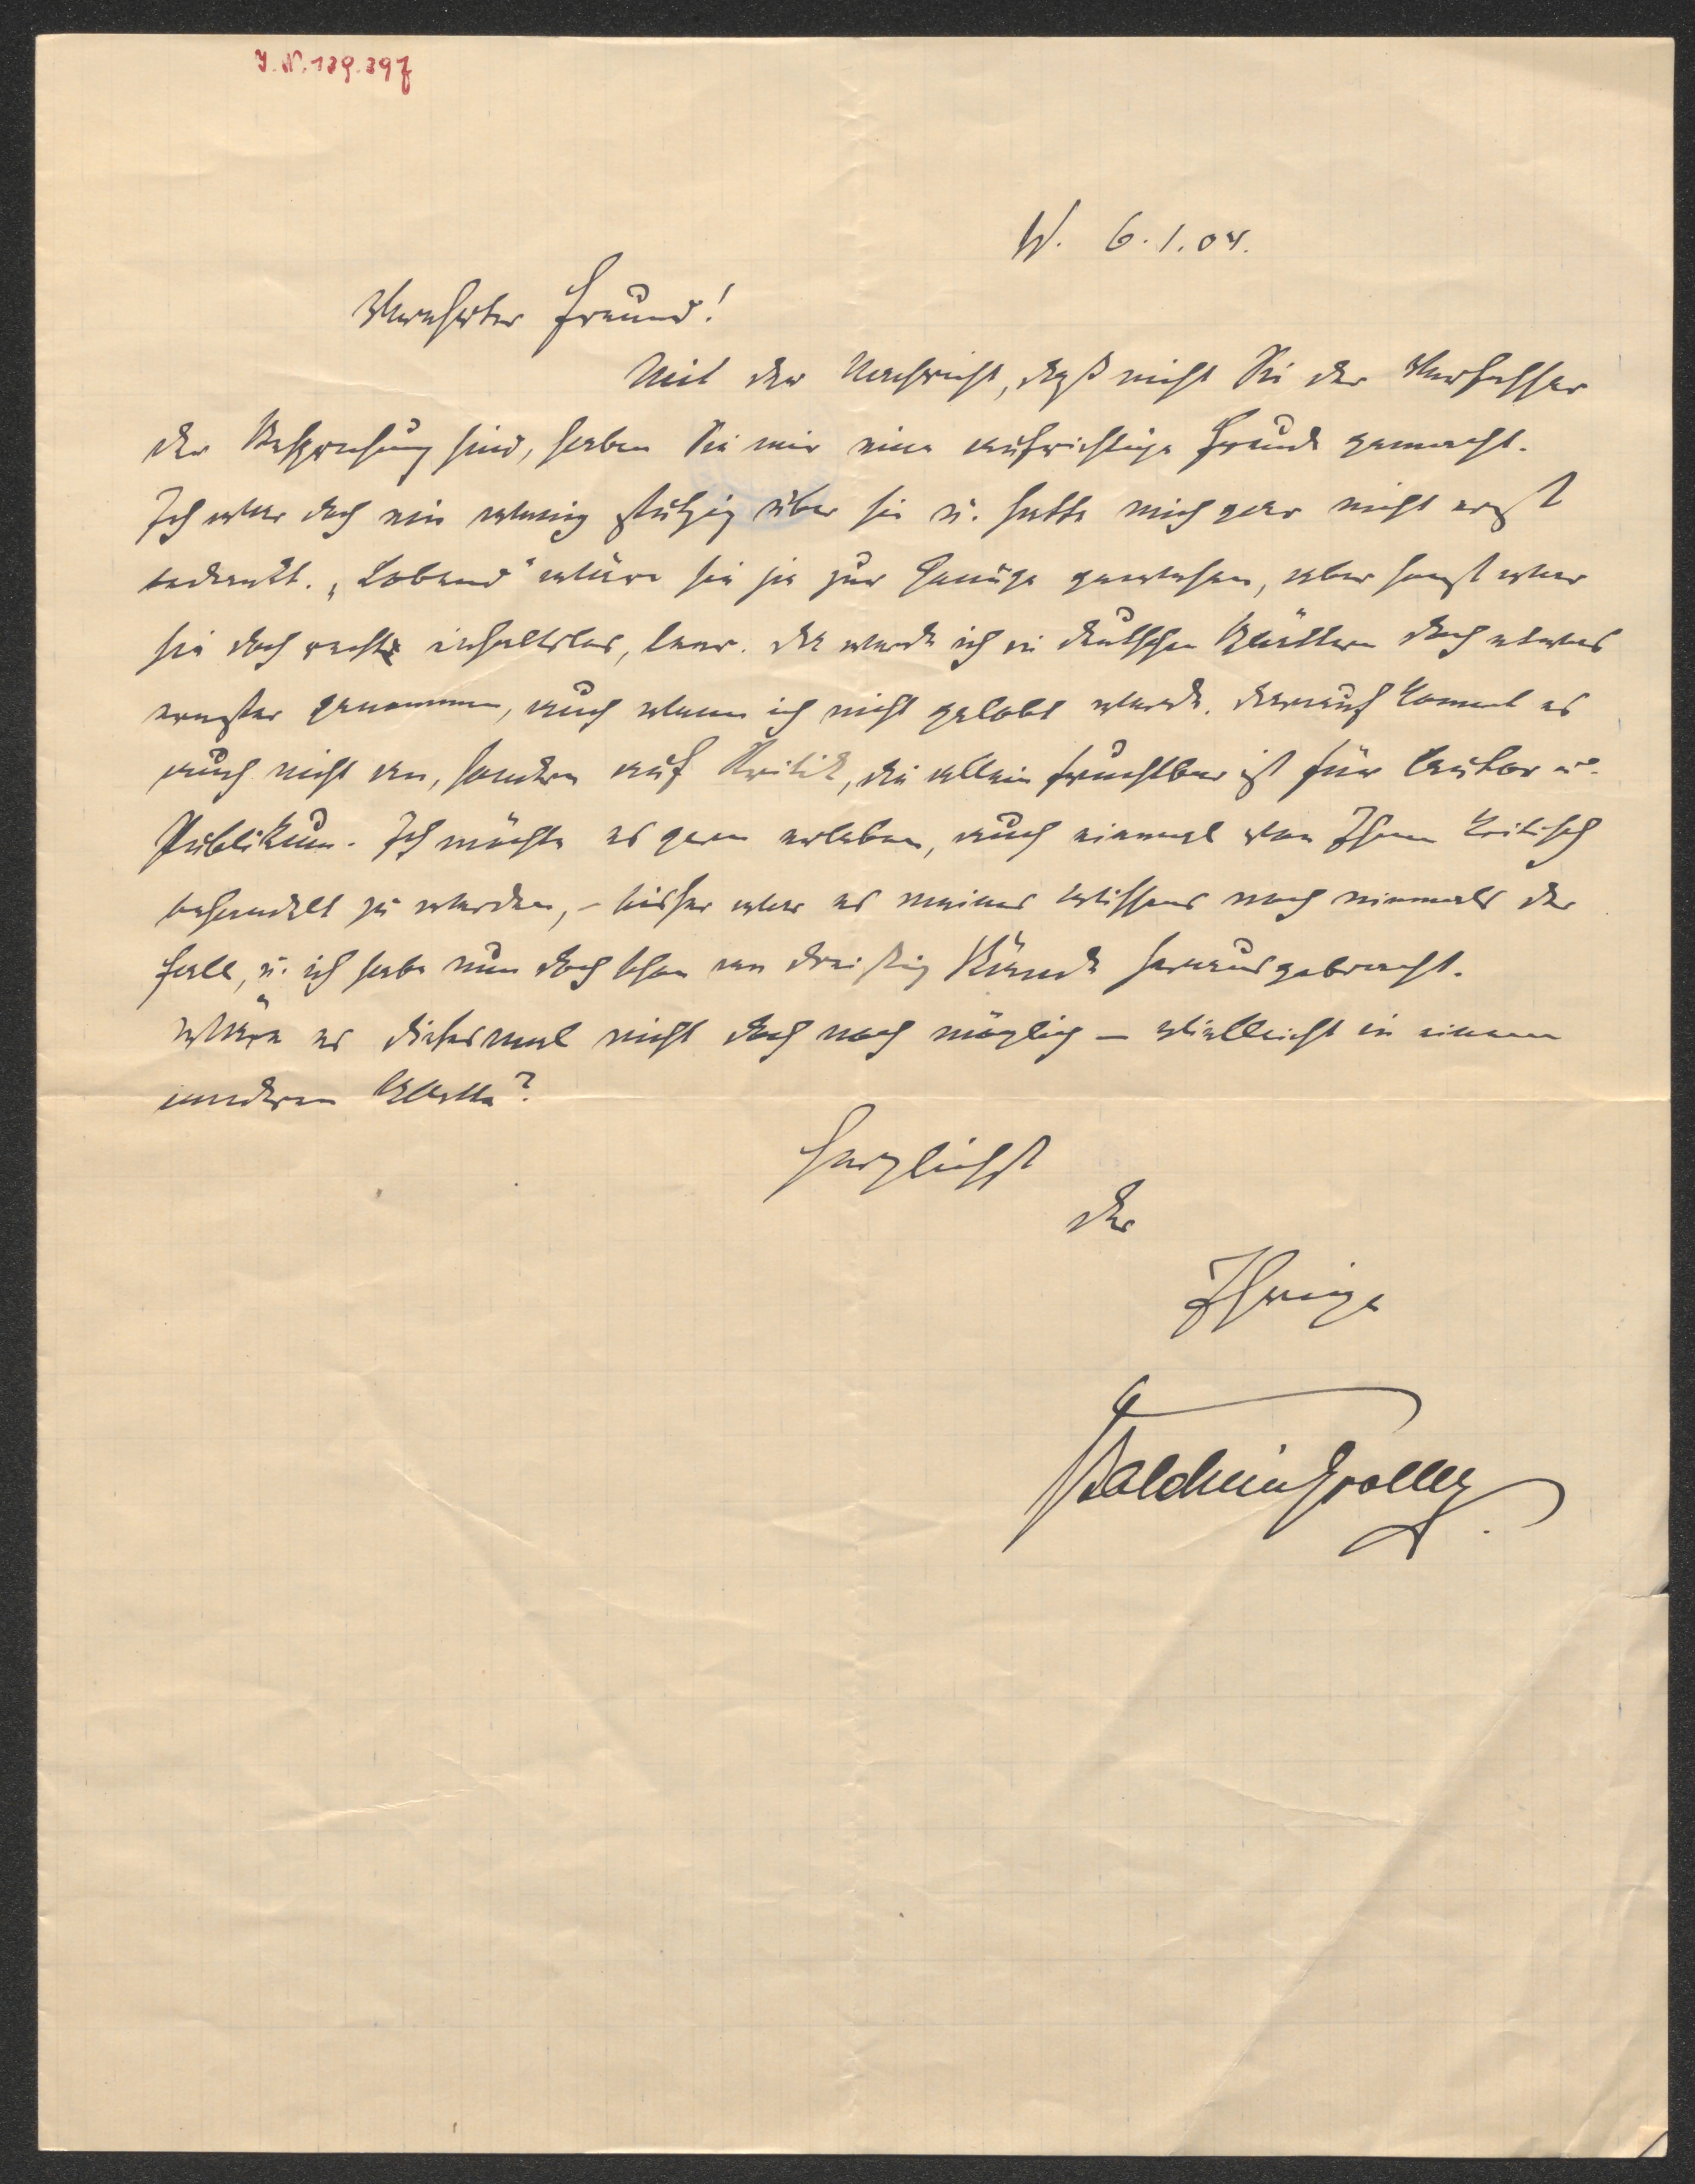 J. N. 139.397
W. 6.1.04.
Verehrter Freund!
Mit der Nachricht, daß nicht Sie der Verfasser
der Besprechung sind, haben Sie mir eine aufrichtige Freude gemacht.
Ich war doch ein wenig stutzig über sie u. hatte mich gar nicht erst
bedankt. „Lobend“ wäre sie ja zur Genüge gewesen, aber sonst war
sie doch recht inhaltslos, leer. Da wurde ich in deutschen Blättern doch etwas
ernster genommen, auch wenn ich nicht gelobt wurde. Darauf kommt es
auch nicht an, sondern auf Kritik, die allein fruchtbar ist für Autor u.
Publikum. Ich möchte es gern erleben, auch einmal von Ihnen kritisch
behandelt zu werden, – bisher war es meines Wissens noch niemals der
Fall, u. ich habe nun doch schon an dreißig Bände herausgebracht.
Wäre es diesesmal nicht doch noch möglich – vielleicht in einem
anderen Blatte?
Herzlichst
der
Ihrige
Balduin Groller